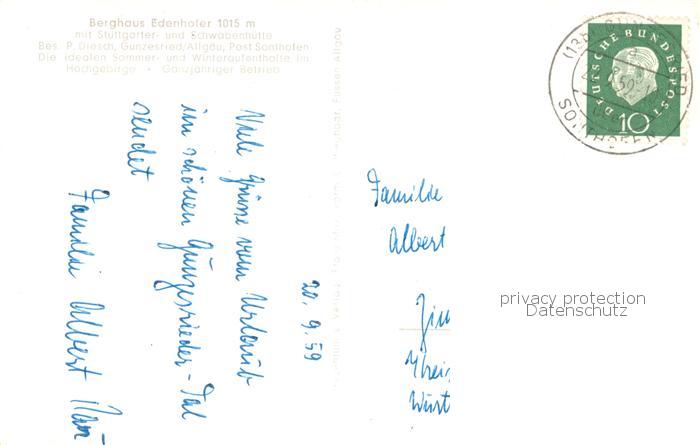 Berghaus Edenhofer 1015 m
mit Stuttgarter- und Schwabenhütte
Bes. P. Diesch, Gunzesried/Allgäu, Post Sonthofen
Die idealen Sommer- und Winteraufenthalte im
Hochgebirge • Ganzjähriger Betrieb
Viele Grüsse vom Urlaub
im schönen Gunzesrieder-Tal
sendet
Familie Albert
20. 9. 59
Füssen Allgäu
DEUTSCHE BUNDESPOST
10
(13b)
SONTHOFEN
Familie
Albert
privacy protection
Datenschutz